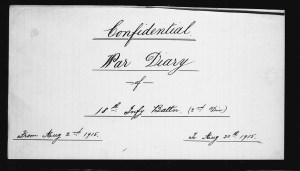 Confidential
War Diary
-of-
18th Infy Battn (2nd Div)
From Aug 2nd 1915. To Aug 30th 1915.